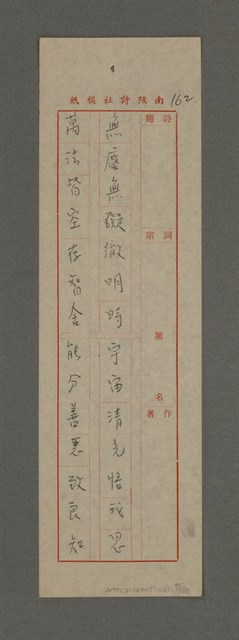 南陔詩社稿紙
162
詩題
詞宗
第 名
作者
無塵無礙徹明時宇宙清光悟我思
萬法皆空存智舍能分善惡致良知